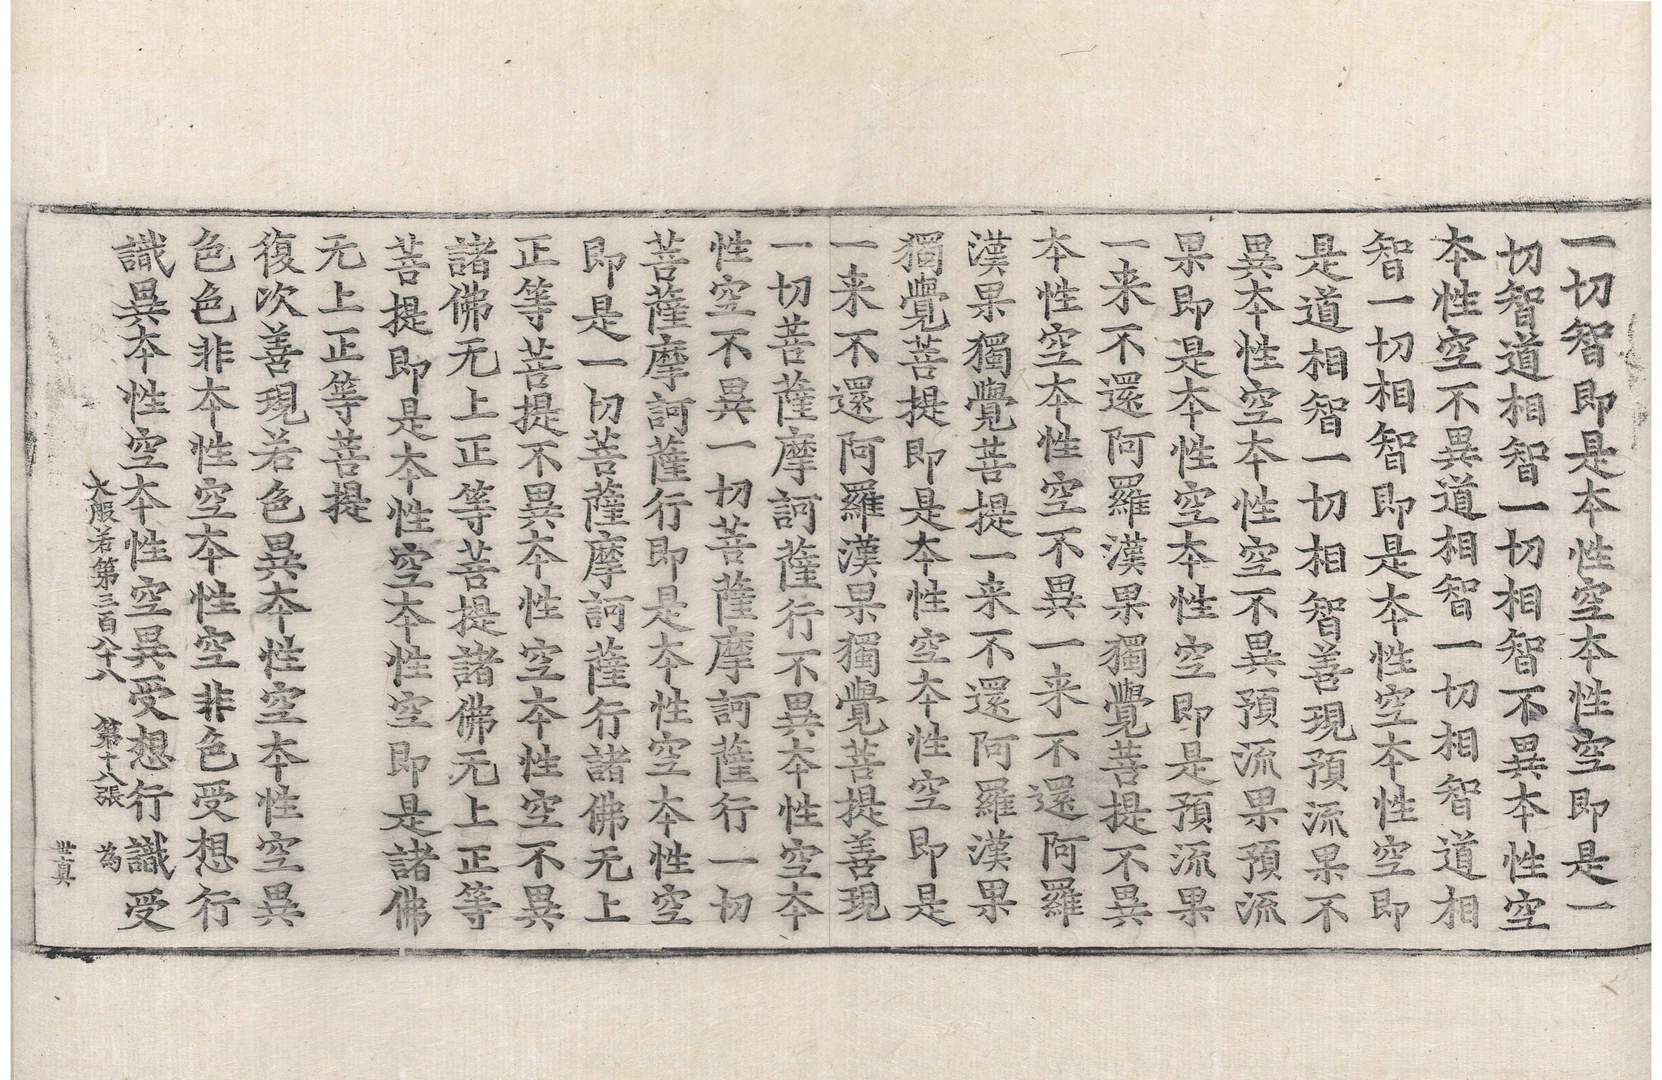 一切智即是本性空本性空即是一
切智道相智一切相智不異本性空
本性空不異道相智一切相智道相
智一切相智即是本性空本性空即
是道相智一切相智善現預流果不
異本性空本性空不異預流果預流
果即是本性空本性空即是預流果
一来不還阿羅漢果獨覺菩提不異
本性空本性空不異一来不還阿羅
漢果獨覺菩提一来不還阿羅漢果
獨覺菩提即是本性空本性空即是
一来不還阿羅漢果獨覺菩提善現
一切菩薩摩訶薩行不異本性空本
性空不異一切菩薩摩訶薩行一切
菩薩摩訶薩行即是本性空本性空
即是一切菩薩摩訶薩行諸佛无上
正等菩提不異本性空本性空不異
諸佛无上正等菩提諸佛无上正等
菩提即是本性空本性空即是諸佛
无上正等菩提
復次善現若色異本性空本性空異
色色非本性空本性空非色受想行
識異本性空本性空異受想行識受
大般若第三百八十八 第十八張 為
世真